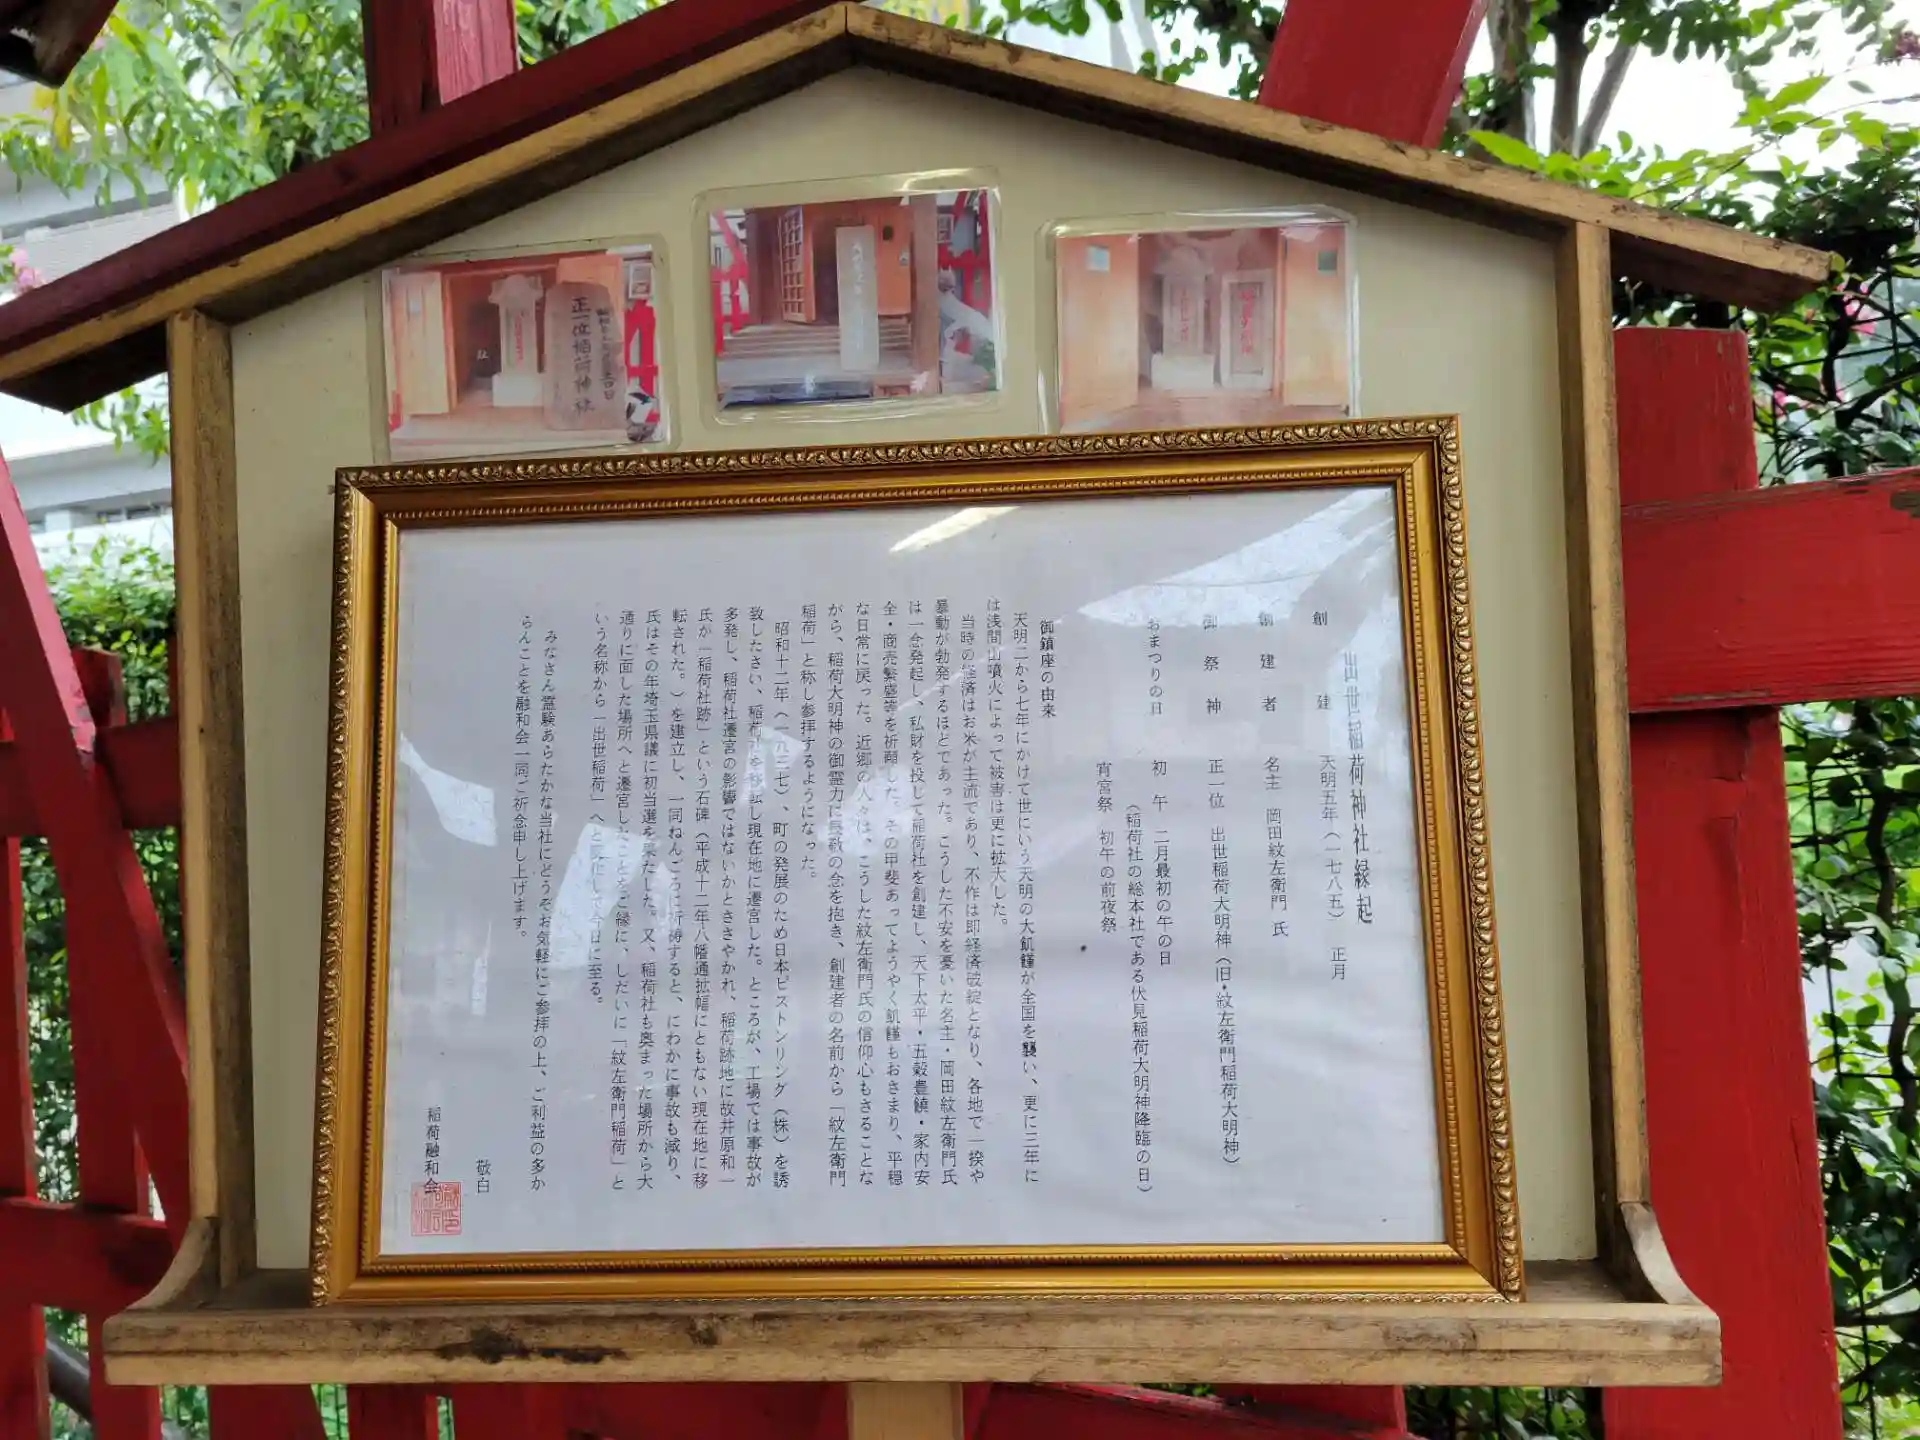 正一位稲荷神社
出世稲荷神社縁起
創建 天明五年(一七八五) 正月
創建者 名主 岡田紋左衛門 氏
御祭神 正一位 出世稲荷大明神(旧・紋左衛門稲荷大明神)
おまつりの日 初午 二月最初の午の日
(稲荷社の総本社である伏見稲荷大明神降臨の日)
宵宮祭 初午の前夜祭
御鎮座の由来
天明二から七年にかけて世にいう天明の大飢饉が全国を襲い、更に三年に
は浅間山噴火によって被害は更に拡大した。
当時の経済はお米が主流であり、不作は即経済破綻となり、各地で一揆や
暴動が勃発するほどであった。こうした不安を憂いた名主・岡田紋左衛門氏
は一念発起し、私財を投じて稲荷社を創建し、天下太平・五穀豊饒・家内安
全・商売繁盛等を祈願した。その甲斐あってようやく飢饉もおさまり、平穏
な日常に戻った。近郷の人々は、こうした紋左衛門氏の信仰心もさることな
がら、稲荷大明神の御霊力に畏敬の念を抱き、創建者の名前から「紋左衛門
稲荷」と称し参拝するようになった。
昭和十二年(一九三七)、町の発展のため日本ピストンリング(株)を誘
致したさい、稲荷社を移転し現在地に遷宮した。ところが、工場では事故が
多発し、稲荷社遷宮の影響ではないかとささやかれ、稲荷跡地に故井原和一
氏が「稲荷社跡」という石碑(平成十二年八幡通拡幅にともない現在地に移
転された。)を建立し、一同ねんごろに祈祷すると、にわかに事故も減り、
氏はその年埼玉県議に初当選を果たした。又、稲荷社も奥まった場所から大
通りに面した場所へと遷宮したことをご縁に、しだいに「紋左衛門稲荷」と
いう名称から「出世稲荷」へと変化して今日に至る。
みなさん霊験あらたかな当社にどうぞお気軽にご参拝の上、ご利益の多か
らんことを融和会一同ご祈念申し上げます。
敬白
稲荷融和会